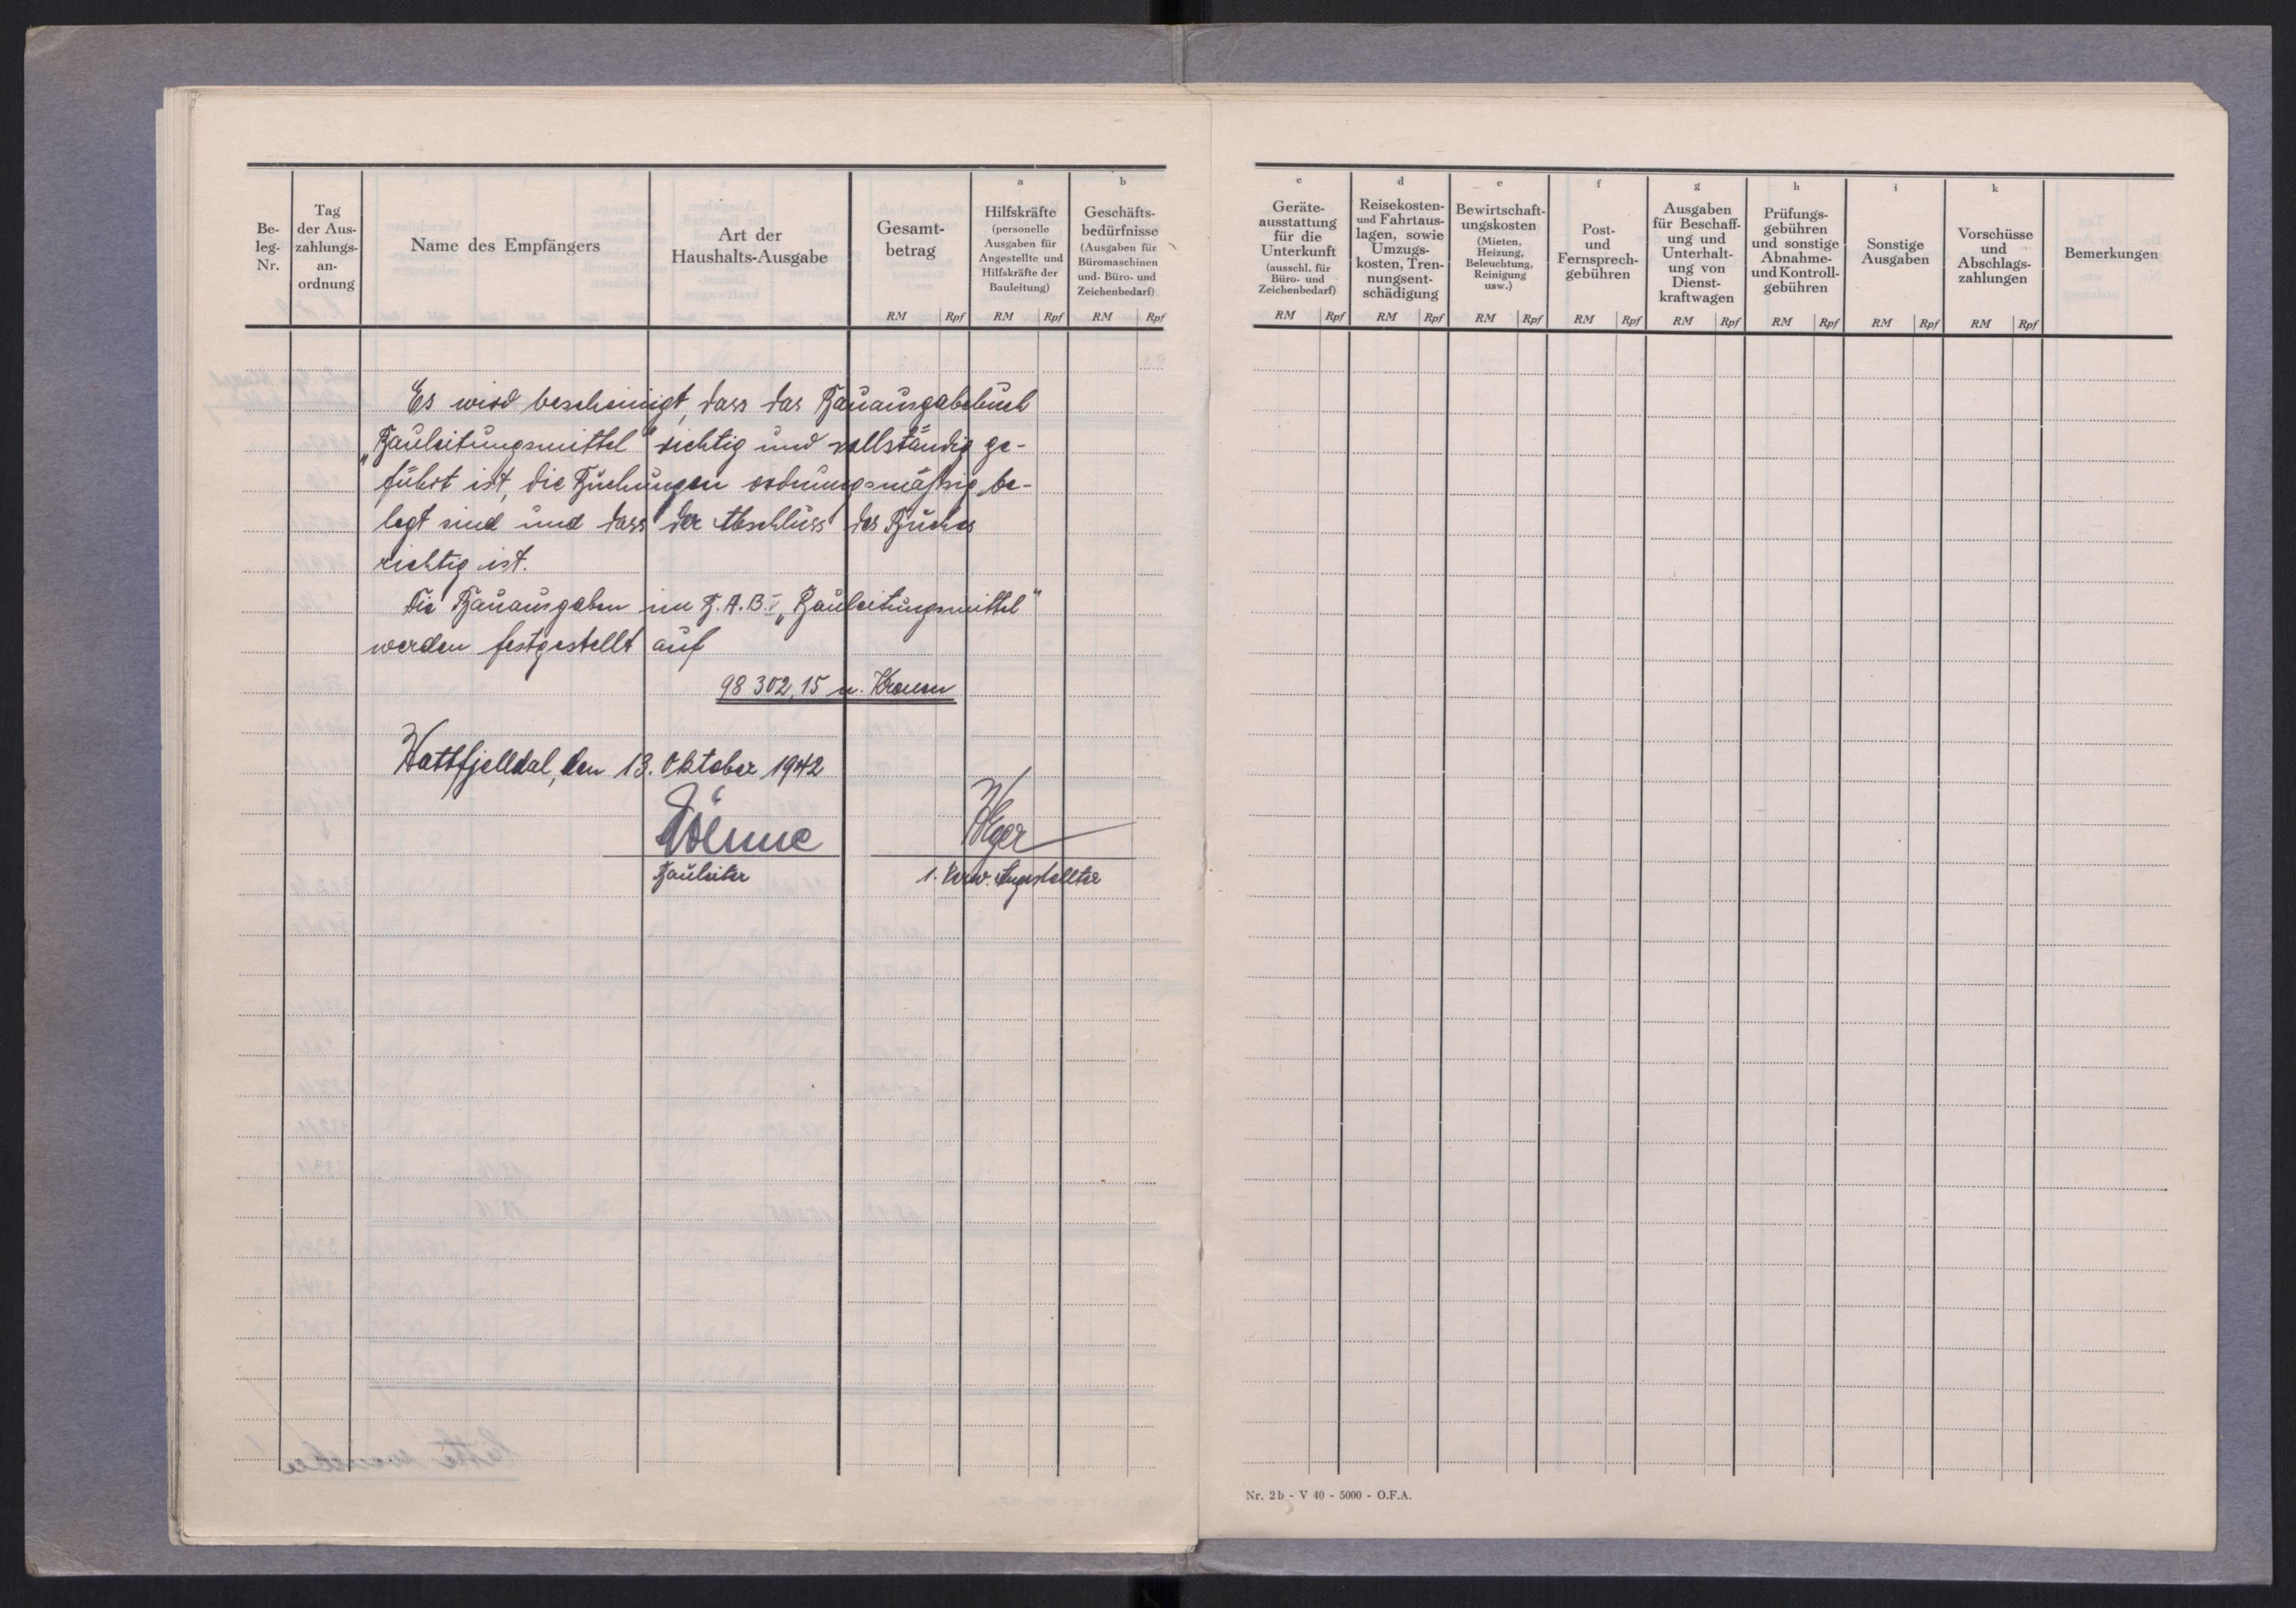 Be-
leg-
Nr.
Tag
der Aus-
zahlungs-
an-
ordnung
Name des Empfängers
Art der
Haushalts-Ausgabe
Gesamt-
betrag
RM Rpf
a
Hilfskräfte
(personelle
Ausgaben für
Angestellte und
Hilfskräfte der
Bauleitung)
RM Rpf
b
Geschäfts-
bedürfnisse
(Ausgaben für
Büromaschinen
und- Büro- und
Zeichenbedarf)
RM Rpf
Es wird bescheinigt, dass das Bauausgabebuch
„Bauleitungsmittel" richtig und vollständig ge-
führt ist, die Buchungen ordnungsmäßig be-
legt sind und dass der Abschluss des Buches
richtig ist.
Die Bauausgaben im B.A.B. V „Bauleitungsmittel"
werden festgestellt auf
98 302,15 n. Kronen
Hattfjelldal, den 13. Oktober 1942
Bauleiter
1. Verw. Angestellter
c
Geräte-
ausstattung
für die
Unterkunft
(ausschl. für
Büro- und
Zeichenbedarf)
RM Rpf
d
Reisekosten-
und Fahrtaus-
lagen, sowie
Umzugs-
kosten, Tren-
nungsent-
schädigung
RM Rpf
e
Bewirtschaft-
ungskosten
(Mieten,
Heizung,
Beleuchtung,
Reinigung
usw.)
RM Rpf
f
Post-
und
Fernsprech-
gebühren
RM Rpf
g
Ausgaben
für Beschaff-
ung und
Unterhalt-
ung von
Dienst-
kraftwagen
RM Rpf
h
Prüfungs-
gebühren
und sonstige
Abnahme-
und Kontroll-
gebühren
RM Rpf
i
Sonstige
Ausgaben
RM Rpf
k
Vorschüsse
und
Abschlags-
zahlungen
RM Rpf
Bemerkungen
Nr. 2b - V 40 - 5000 - O.F.A.